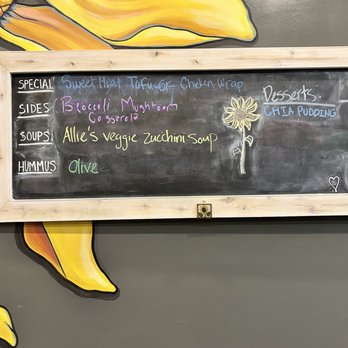 SPECIAL Sweet Heat Tofu or Chicken Wrap
SIDES Broccoli Mushroom
Casserole
SOUPS Allie's veggie Zucchini Soup
HUMMUS Olive
Desserts:
CHIA PUDDING